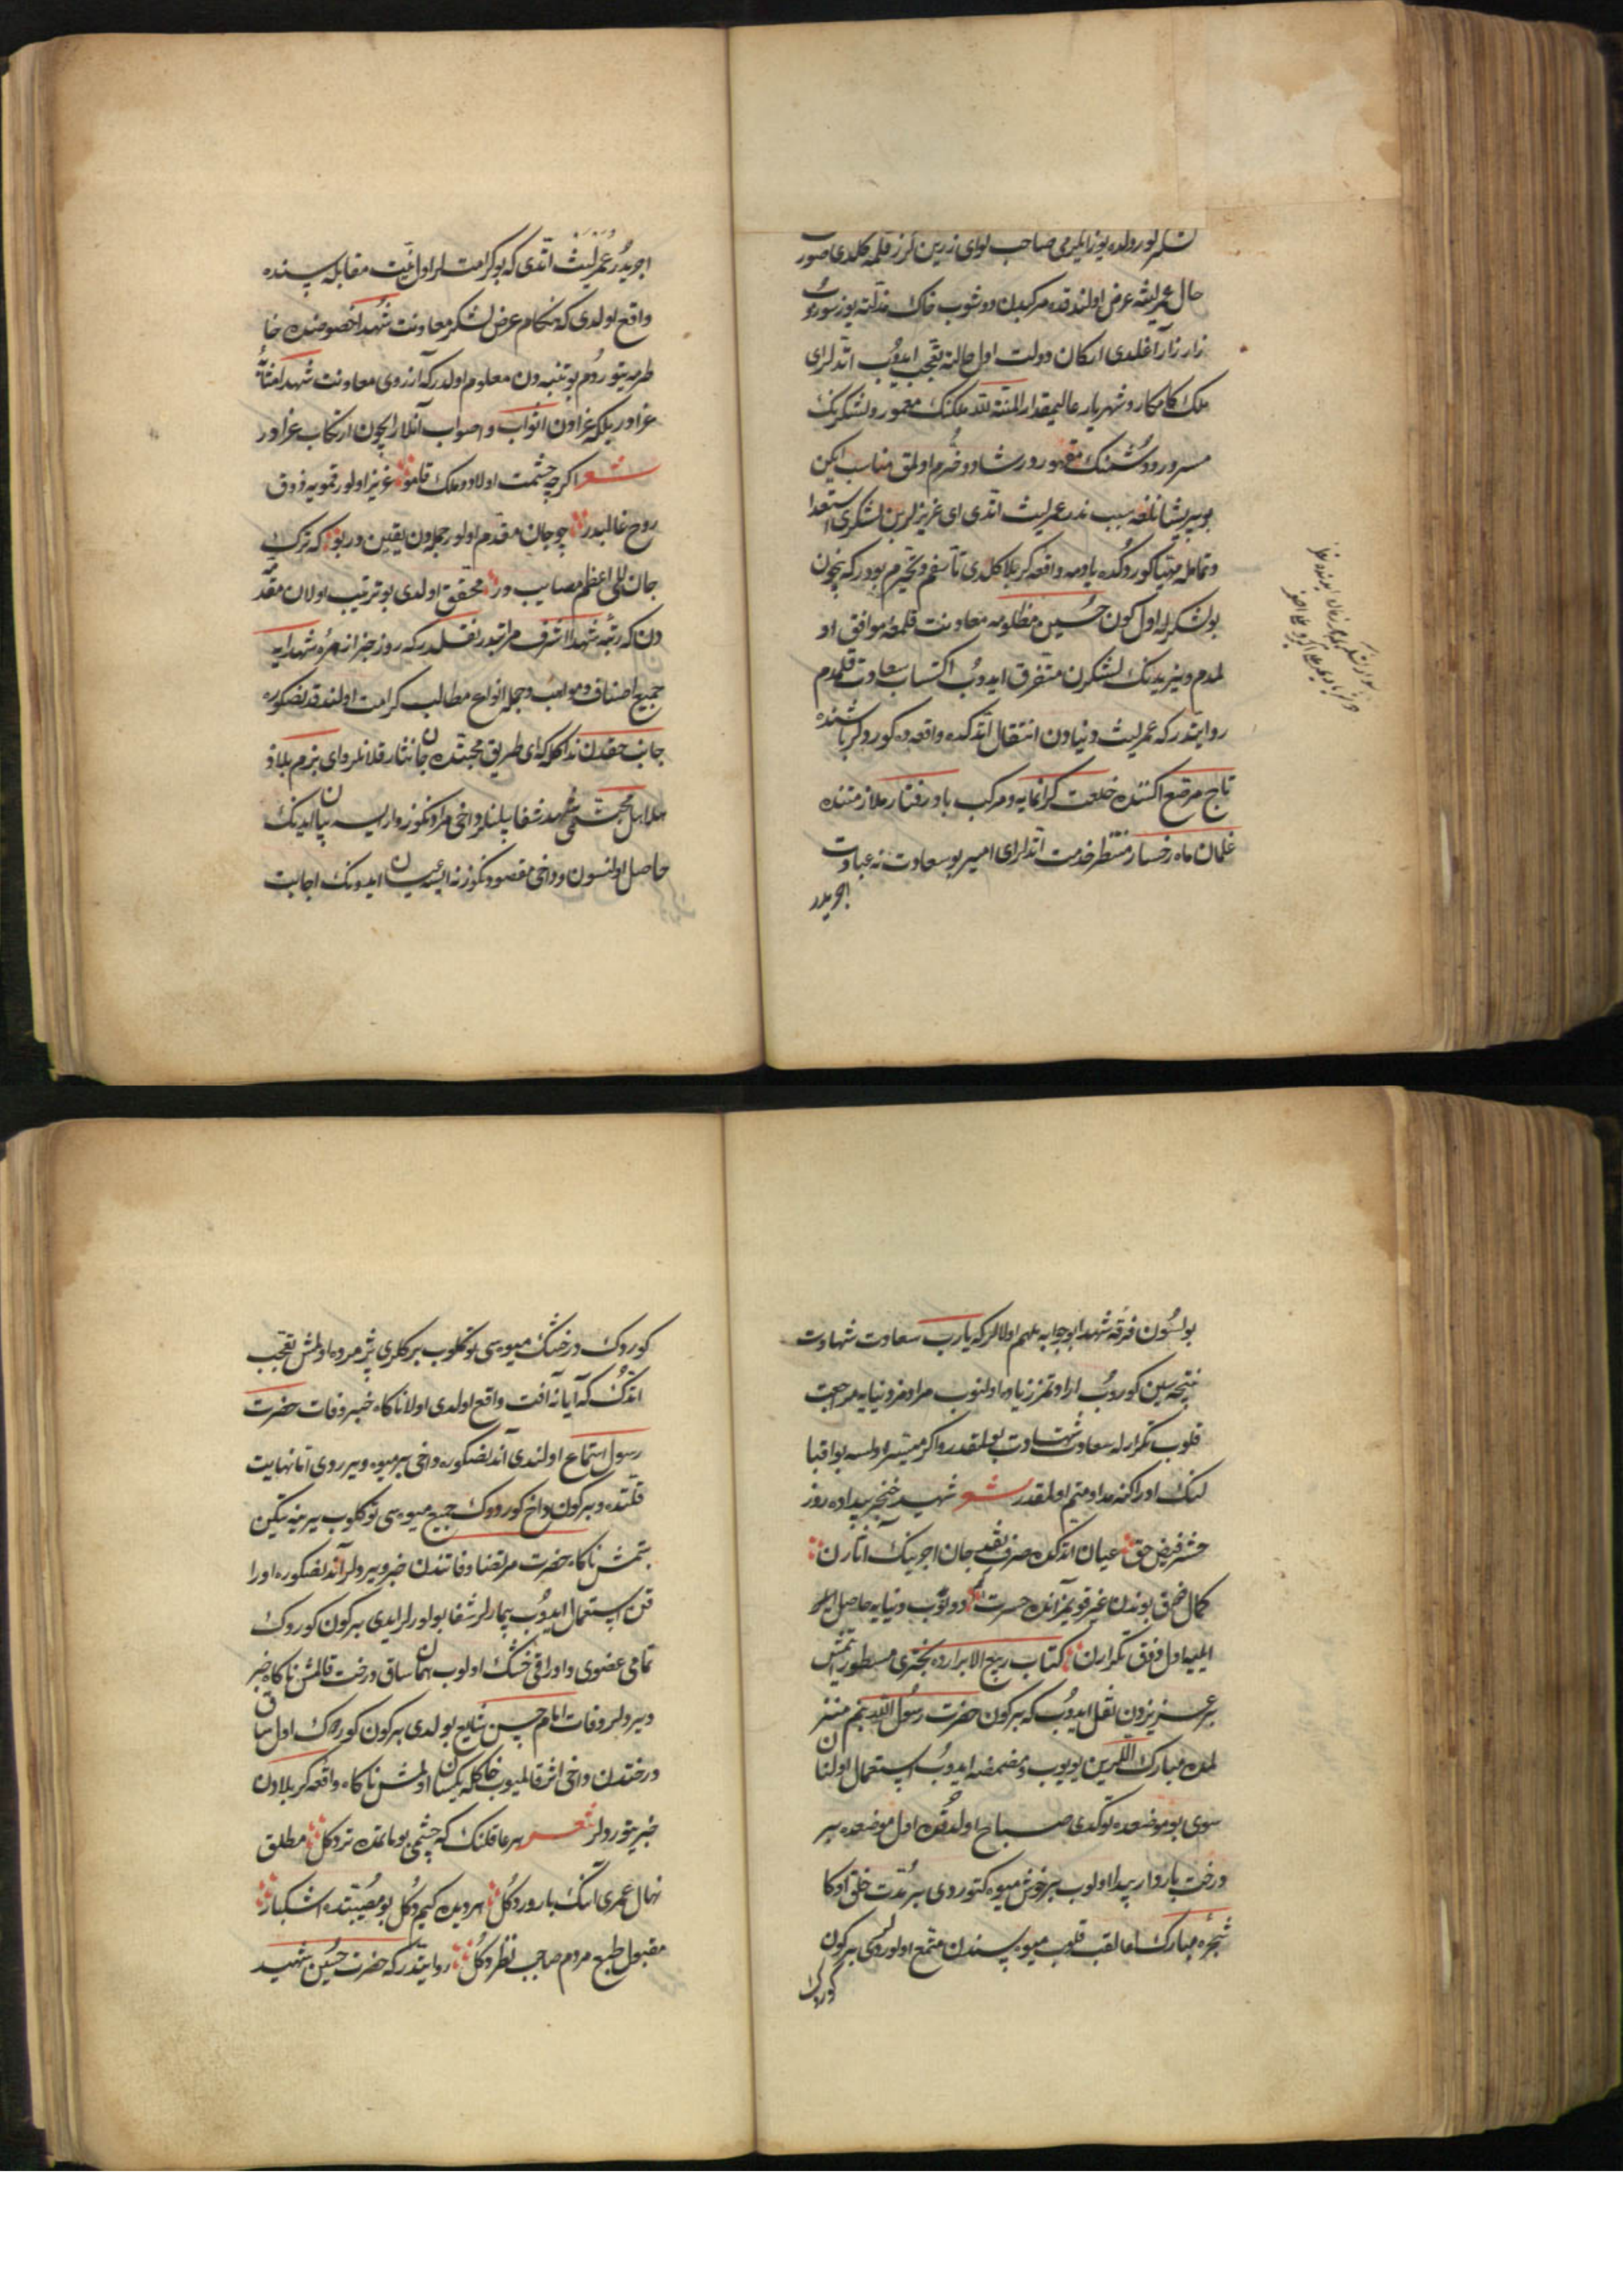 حال عمر لیثه عرض اولندقده مرکبدن دوشوب خاک مذلته یوز سوروب
زار زار آغلدی ارکان دولت اول حالته تعجب ایدوب اتدلرای
ملک کامکار و شهریار عالیمقدار المنة لله ملکنک معمور ولشکرنک
مسرور و دشمنک مقهور در شاد و خرم اولمق مناسب ایکن
بو پریشانلغه سبب ندر عمر لیث اتدی ای عزیزلر بن لشکری استعدا
و تمامله مهیا کوردکده یادمه واقعه کربلا کلدی تأسفم و تحیرم بودر که نچون
بو لشکرله اول کون حسین مظلومه معاونت قلمغه موافق او
لمدم و یزیدنک لشکرن متفرق ایدوب اکتساب سعادت قلمدم
روایتدر که عمر لیث دنیادن انتقال اتدکده واقعه ده کوردلر باشنده
تاج مرصع اکننده خلعت کرانمایه و مرکب باد رفتار ملازمتنده
غلمان ماه رخسار منتظر خدمت اتدلرای امیر بو سعادت نه عبادت
اجریدر
اجریدر عمر لیث اتدی که بو کرامتلر اول نیت مقابله سنده
واقع اولدی که هنکام عرض لشکر معاونت شهدا خصوصنده خا
طرمه یتوردم بو تنبیه دن معلوم اولدر که آرزوی معاونت شهدا مثابه
غزادر بلکه غزادن اثواب و اصواب آنلار ایچون ارتکاب غزادر
شعر اکرچه حشمت اولاد و ملک قامو عزیز اولور قمویه ذوق
روح غالبدر چو جان مقدم اولور جمله دن یقین در بو که ترک
جان اعظم مصایب در محقق اولدی بو ترتیب اولان مقد
دن که رتبه شهدا اشرف مراتبدر نقلدر که روز جزا زمره شهدایه
جمیع اصناف و مواهب و جمله انواع مطالب کرامت اولندقدنصکره
جانب حقدن ندا کله که ای طریق محبتده جان نثار قلانلر وای بزم بلاده
هلاهل محنتی شهد شفا بلنلر داخی مرادنکوز وار ایسه بیان ایدنک
حاصل اولنسون و داخی مقصودنکوز نه ایسه عیان ایدونک اجابت
بولسون فرقه شهدا بو جوابه ملهم اولالر که یارب سعادت شهادت
نتیجه سین کوروب ارادتمز زیاده اولنوب مرادمز دنیایه مراجعت
قلوب تکرار له سعادت شهادت بولمقدر و اکر میسر اولسه بو اقبا
لنک ادراکنه مداومتم اولمقدر شعر شهید خنجر بیداده روز
حشر فیض حق عیان اتدکده صرف نقد جان اجرینک آثارن
کمال ذوق بوندن غیر قویمز آنده حسرت دونوب دنیایه حاصل
ایلیه اول ذوق تکرارن کتاب ربیع الابرارده مسطور
بر عزیزدن نقل ایدوب که بر کون حضرت رسول الله بنم منز
لمده مبارک اللرین یویوب و مضمضه ایدوب استعمال اولنان
سوی بو موضعده توکدی صباح اولدقده اول موضعده بیر
درخت باردار پیدا اولوب بر خوش میوه کتوردی بر مدت خلق اوکا
شجره مبارک لقب قلوب میوه سندن متمتع اولورلردی بر کون
کوردک
کوردک درختنک میوه سی توکلوب برکلری پژمرده اولمش تعجب
اتدک که آیا نه آفت واقع اولدی اولا ناکاه خبر وفات حضرت
رسول استماع اولندی آندنصکره داخی بیر میوه ویرردی اما نهایت
قلتده و بیر کون داخی کوردوک جمیع میوه سی توکلوب یرینه تیکن
بتمش ناکاه حضرت مرتضا وفاتندن خبر ویردلر آندنصکره اورا
قن استعمال ایدوب بیمارلر شفا بولورلر ایدی بیر کون کوردک
تمامی عضوی و اوراقی خشک اولوب همان ساق درخت قالمش ناکاه خبر
ویردلر وفات امام حسن شایع بولدی بیر کون کوردک اول ساق
درختدن داخی اثر قالمیوب خاکله یکسان اولمش ناکاه واقعه کربلادن
خبر یتوردلر شعر هر عاقلنک که چشمی بو ماتمده تر دکل مطلق
نهال عمری انک بارور دکل هر دیده کیم دکل بو مصیبتده اشکبار
مقبول طبع مردم صاحب نظر دکل روایتدر که حضرت حسین شهید